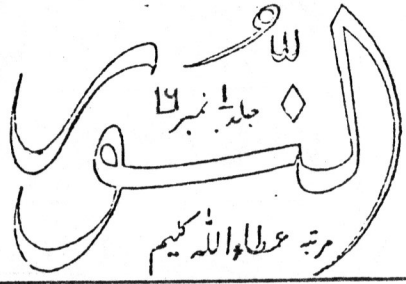 النور
جلد ۱ نمبر ۱۶
مرتبہ عطاء اللہ کلیم